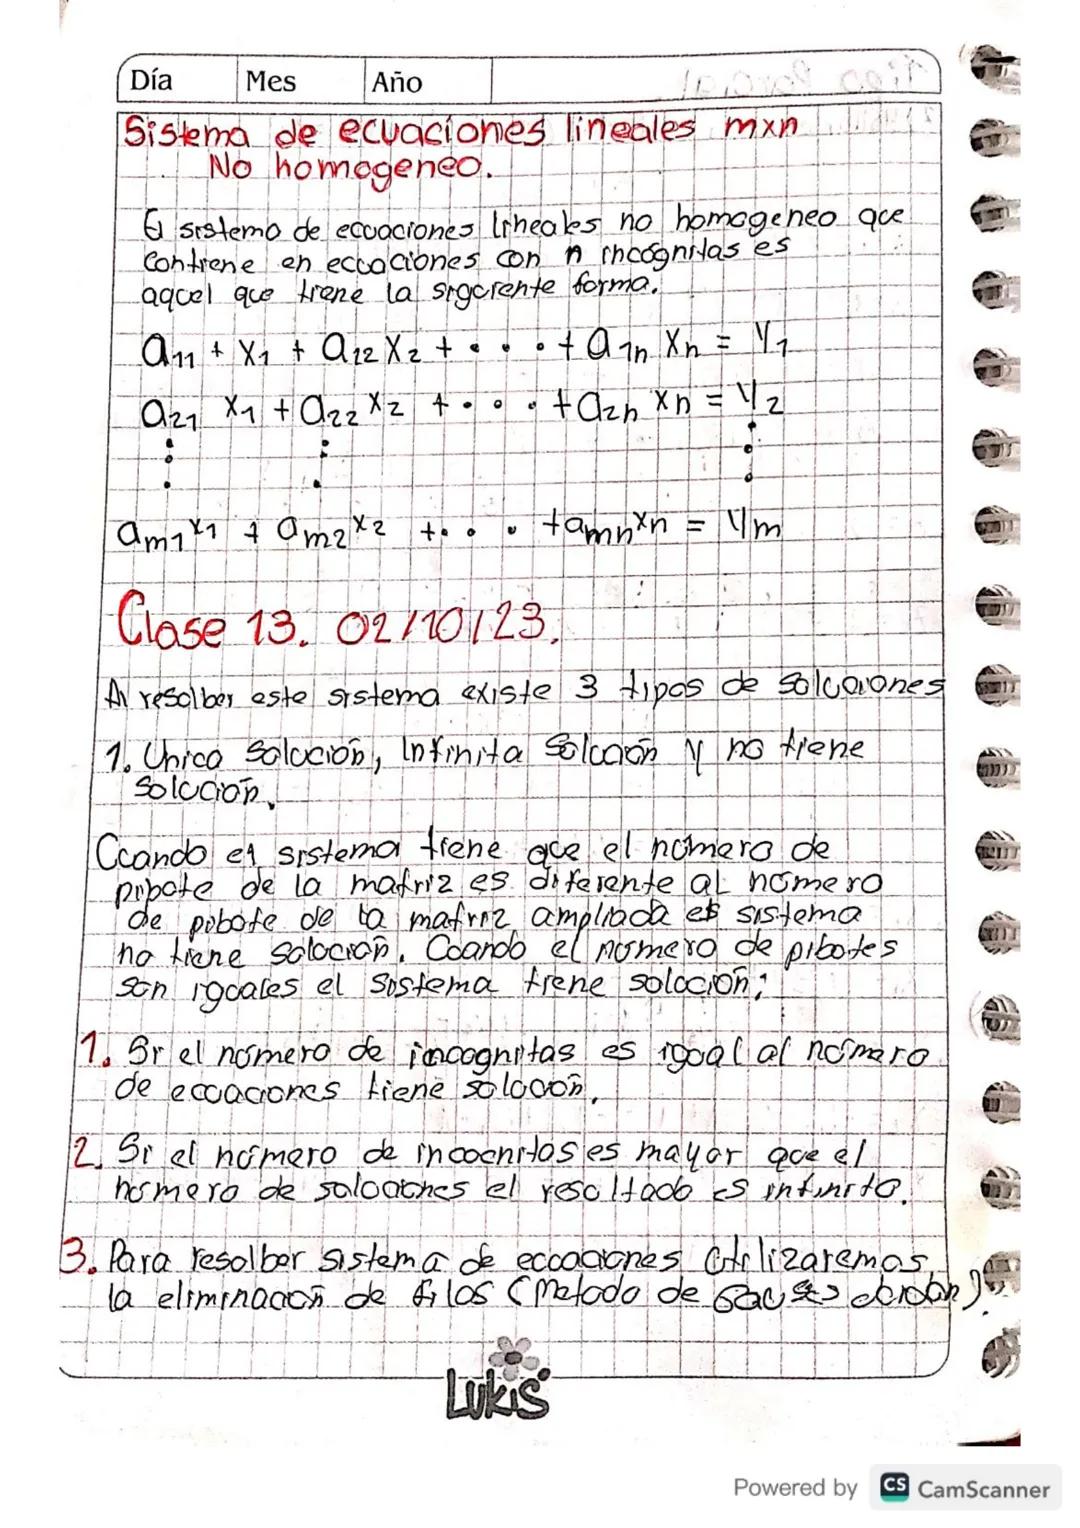 Día Mes Año
Sistema de ecuaciones lineales mxn
No homogeneo.
El sistema de ecuaciones lineales no homogeneo que
Contiene en ecuaciones con n incógnitas es
aquel que tiene la siguiente forma.
a11 + x1 + a12 x2 + . . . + a1n xn = y1
a21 x1 + a22 x2 + . . . + a2n xn = y2
⋮ ⋮ ⋮
am1 x1 + am2 x2 + . . . + amn xn = ym
Clase 13. 02/10/23.
Al resolber este sistema existe 3 tipos de soluciones
1. Unica solución, Infinita Solución y no tiene
solución.
Cuando el sistema tiene que el número de
pibote de la matriz es diferente al número
de pibote de la matriz ampliada el sistema
no tiene solución. Cuando el número de pibotes
son iguales el sistema tiene solución;
1. Si el número de incognitas es igual al número
de ecuaciones tiene solución.
2. Si el número de incocnitas es mayor que el
número de soluciones el resultado es infinito.
3. Para resolber sistema de ecuaciones utilizaremos
la eliminación de filas (Metodo de
Lukis
Powered by CS CamScanner